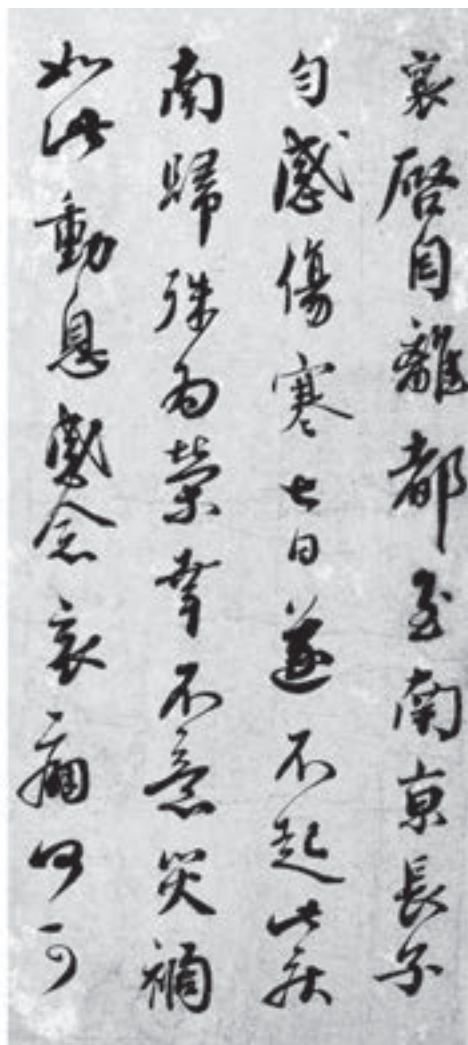 襄啓自離都至南京長子
勻感傷寒七日遂不起此疾
南歸殊爲榮幸不意災禍
如此動息感念哀痛何可